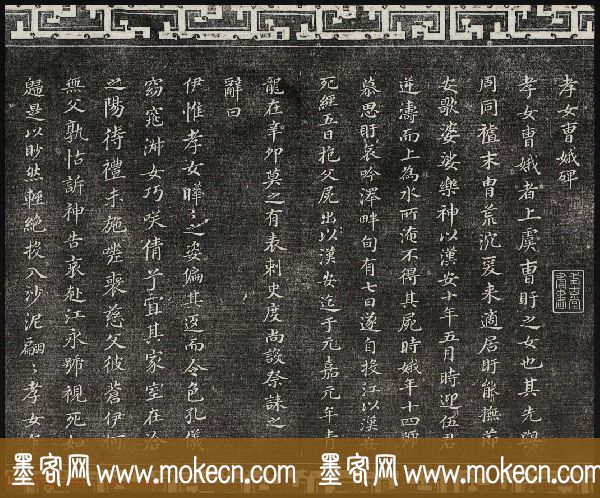 孝女曹娥碑
孝女曹娥者上虞曹盱之女也其先與
周同祖末胄荒沉爰来適居盱能撫節
安歌婆娑樂神以漢安十年五月時迎伍君
逆濤而上為水所淹不得其屍時娥年十四號
慕思盱哀吟澤畔旬有七日遂自投江以漢安
死經五日抱父屍出以漢安迄于元嘉元年青
龍在辛卯莫之有表刺史度尚設祭誄之
辭曰
伊惟孝女曄〻之姿偏其返而令色孔儀
窈窕淑女巧咲倩兮宜其家室在洽
之陽待禮未施嗟喪慈父彼蒼伊何
無父孰怙訴神告哀赴江永號視死如
歸是以眇然輕絶投入沙泥翩〻孝女
墨客网 www.mokecn.com 墨客网 www.mokecn.com